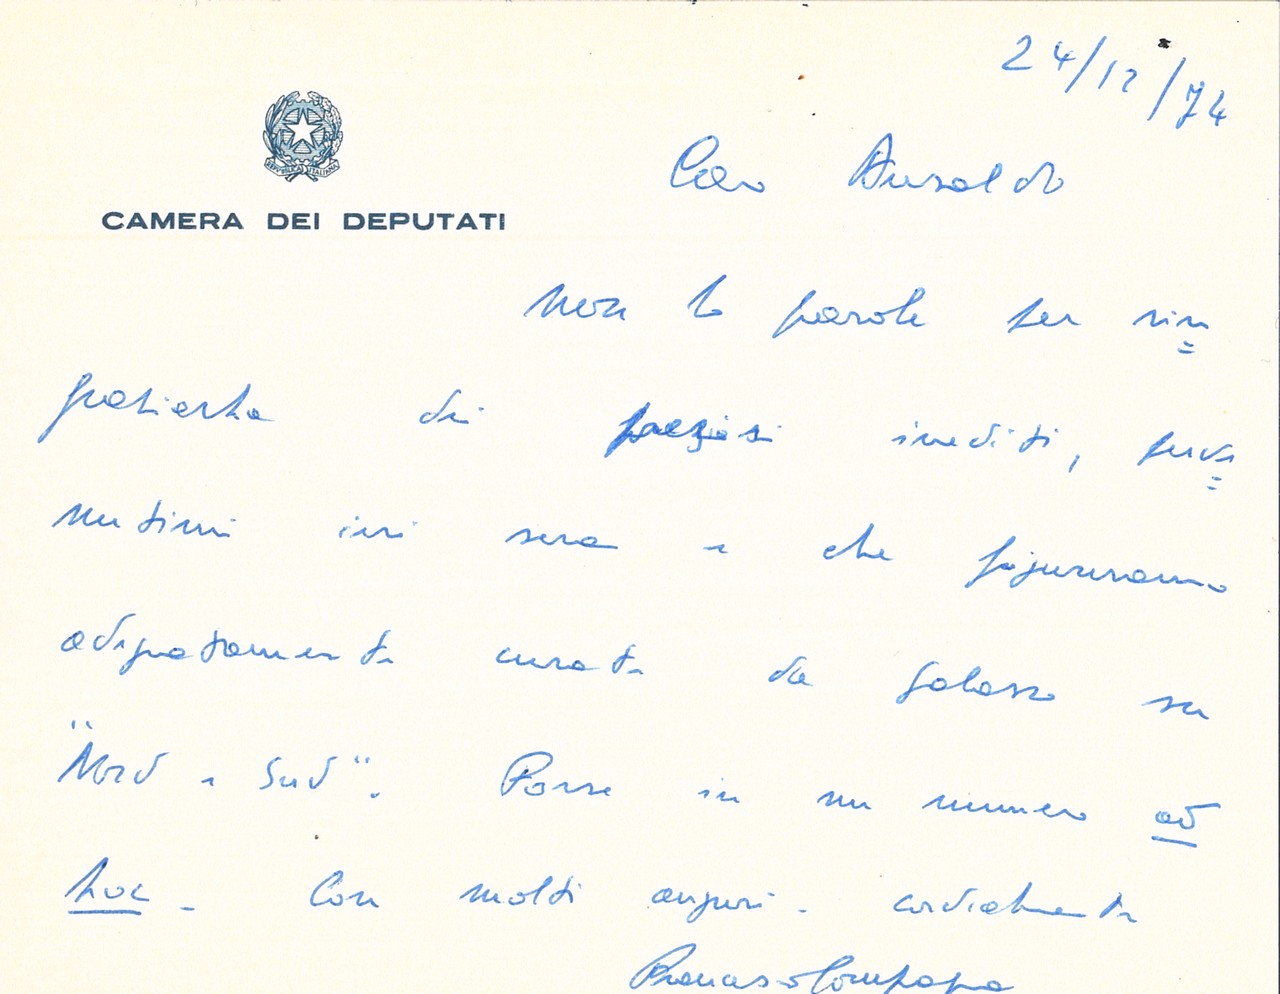 24/12/74
REPVBBLICA ITALIANA
CAMERA DEI DEPUTATI
Caro Ansaldo
non ho parole per rin=
graziarla dei preziosi inediti, perve=
nutimi ieri sera e che figureranno
adeguatamente curati da Galasso su
"Nord e Sud". Forse in un numero ad
hoc - Con molti auguri - cordialmente
Francesco Compagna